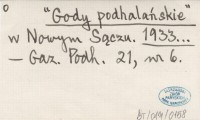 o
"Gody podhalańskie"
w Nowym Sączu. 1933...
— Gaz. Podh. 21, nr 6.